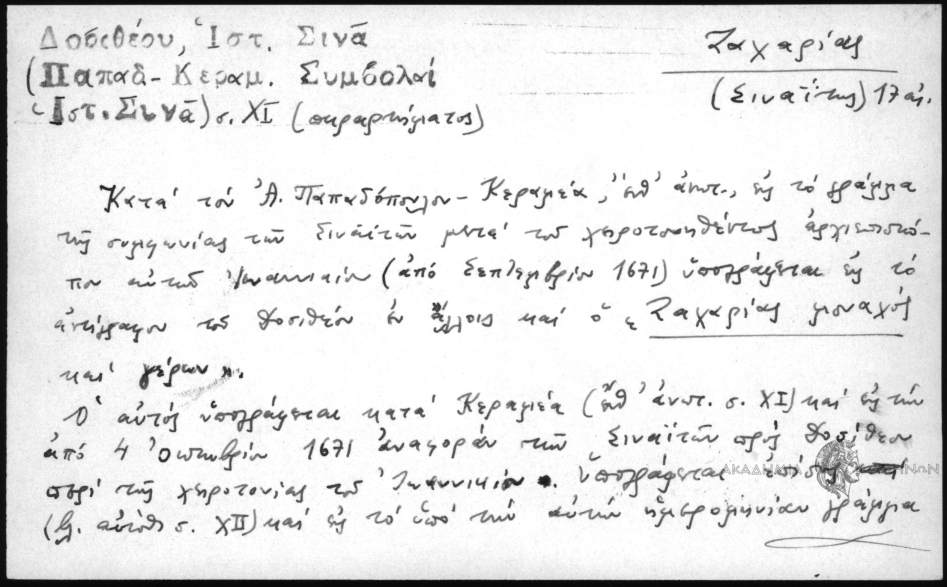 Δοσιθέου, Ἱστ. Σινᾶ
(Παπαδ-Κεραμ. Συμβολαί
Ἱστ. Σινᾶ) σ. XI (παραρτήματος)
Ζαχαρίας
(Σιναΐτης) 17 αἰ.
Κατά τόν Ἀ. Παπαδόπουλον-Κεραμέα, ἔνθ' ἀνωτ., εἰς τό γράμμα
τῆς συμφωνίας τῶν Σιναϊτῶν μετά τοῦ χειροτονηθέντος ἀρχιεπισκό-
που αὐτῶν Ἰωαννικίου (ἀπό Σεπτεμβρίου 1671) ὑπογράφεται εἰς τό
ἀντίγραφον τοῦ Δοσιθέου ἐν ἄλλοις καί ὁ "Ζαχαρίας μοναχός
καί γέρων".
Ὁ αὐτός ὑπογράφεται κατά Κεραμέα (ἔνθ' ἀνωτ. σ. XI) καί εἰς τήν
ἀπό 4 Ὀκτωβρίου 1671 ἀναφοράν τῶν Σιναϊτῶν πρός Δοσίθεον
περί τῆς χειροτονίας τοῦ Ἰωαννικίου. ὑπογράφεται ἐπίσης
(βλ. αὐτόθι σ. XII) καί εἰς τό ὑπό τήν αὐτήν ἡμερομηνίαν γράμμα
ΑΚΑΔΗΜΙΑ ΑΘΗΝΩΝ